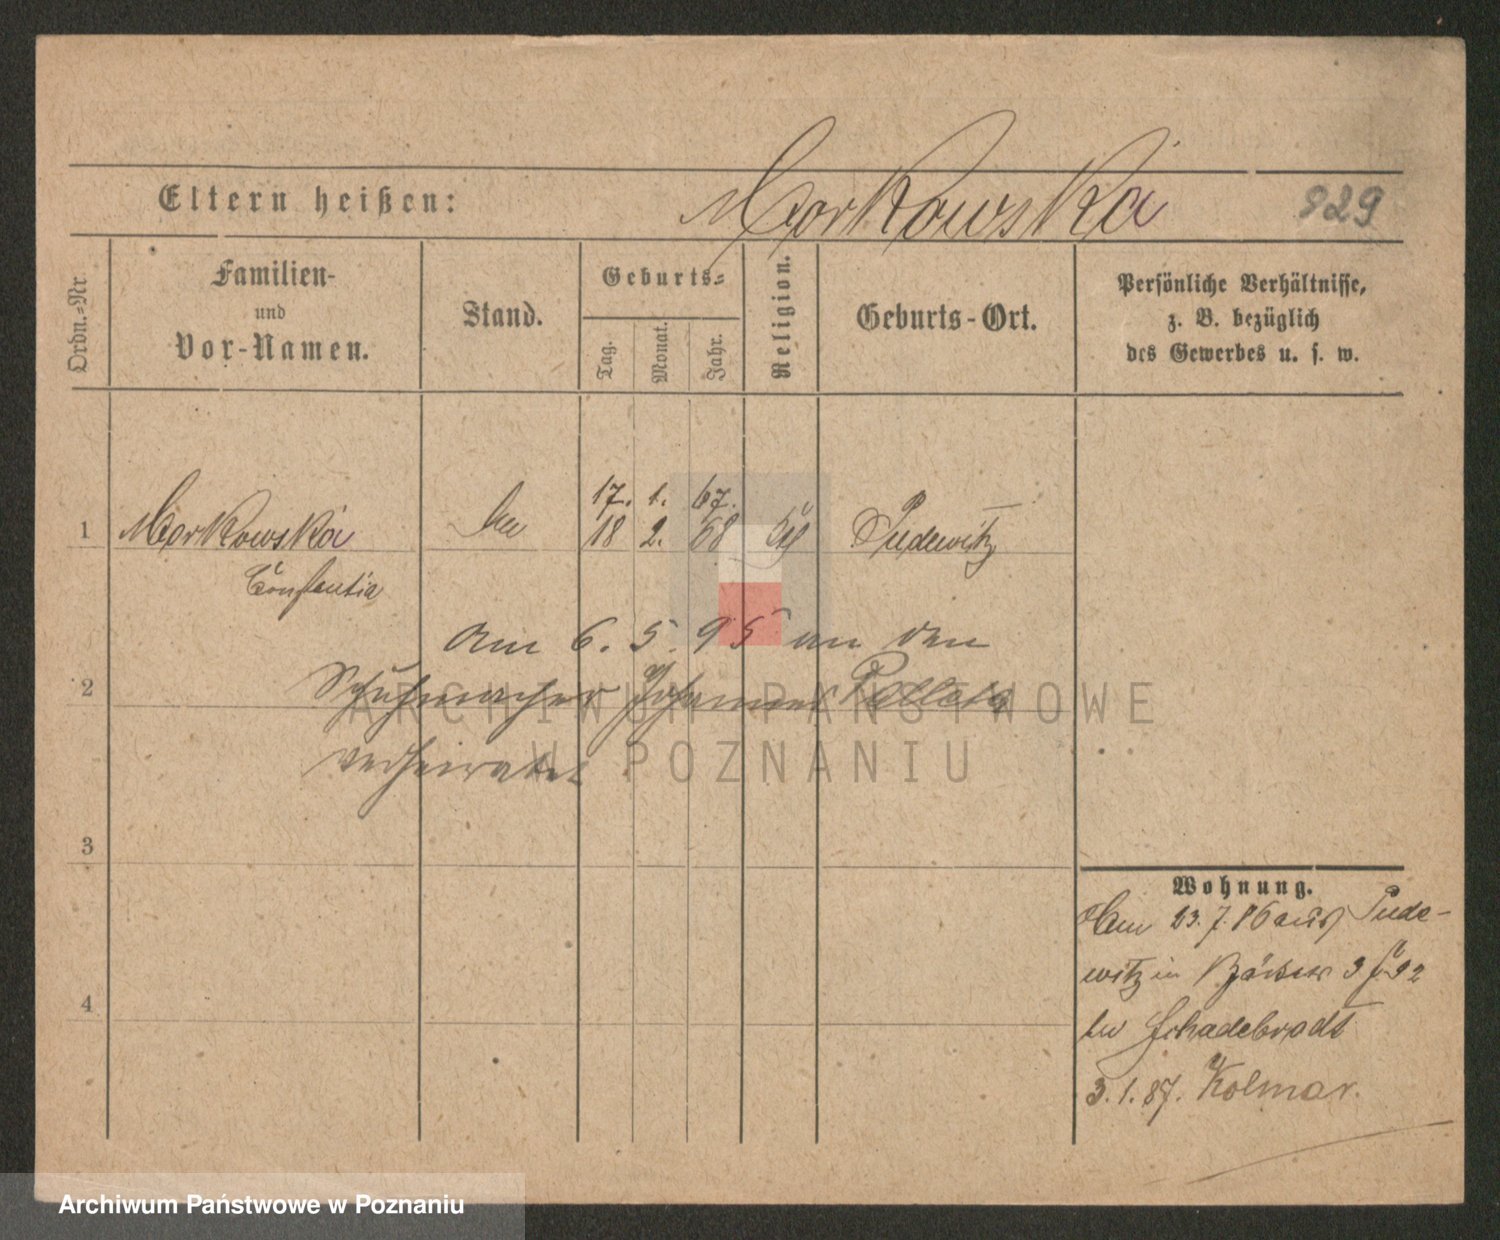 Eltern heißen: Morkowska 929
Ordn.-Nr.
Familien-
und
Vor-Namen.
Stand.
Geburts-
Tag. Monat. Jahr.
Religion.
Geburts-Ort.
Persönliche Verhältnisse,
z. B. bezüglich
des Gewerbes u. s. w.
17. 1. 67.
1 Morkowska 18 2. 68 Pudewitz
Constantia
Am 6. 5. 95 an den
2 Schuhmacher Johannes
verheiratet
3
4
Wohnung.
23. 7. 86 aus Pude-
witz in 3 92
bei Schadebrodt
3. 1. 87. Kolmar.
ARCHIWUM PAŃSTWOWE
W POZNANIU
Archiwum Państwowe w Poznaniu